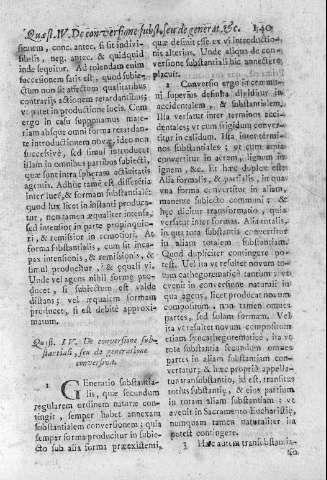 Quæst. IV. De conversione subst. seu de generat. &c. 140
sionem, conc. antec. si sit indivi-
sibilis, neg. antec. & quidquid
inde sequitur. Ad tolendam enim
successionem satis est, quod subie-
ctum non sit affectum qualitatibus
contrarijs actionem retardantibus;
vt patet in productione lucis. Cum
ergo in casu supponamus mate-
riam absque omni forma retardan-
te introductionem novæ, ideo non
successivè, sed simul introducet
illam in omnibus partibus subiecti,
quæ sunt intra spheram activitatis
agentis. Adhuc tamen est differentia
inter lucẽ, & formam substantialẽ:
quod lux licet in instanti produca-
tur, non tamen æqualiter intensa,
sed intensior in parte propinquio-
ri, & remissior in remotiori. At
forma substantialis, cum sit inca-
pax intensionis, & remissionis, &
simul producitur, & æquali vi.
Unde vel agens nihil formæ pro-
ducet, si subiectum est valde
distans; vel æqualem formam
producet, si est debitè approxi-
matum.
Quæst. IV. De conversione sub-
stantiali, seu de generatione
conversiva.
1 GEneratio substantia-
lis, quæ secundum
regularem ordinem naturæ con-
tingit, semper habet annexam
substantialem conversionem; quia
semper forma producitur in subie-
cto sub alia forma præexistenti,
quæ definit esse ex vi introductio-
nis alterius. Unde aliqua de con-
versione substantiali hic annectere
placuit.
2 Conversio ergo in commu-
ni superius definita dividitur in
accidentalem, & substantialem.
Illa versatur inter terminos acci-
dentales; vt cum frigidum conver-
titur in calidum. Ista inter termi-
nos substantiales; vt cum aqua
convertitur in aerem, lignum in
ignem, &c. Et hæc duplex est:
Alia formalis, & partialis, in qua
vna forma convertitur in aliam,
manente subiecto communi; &
hæc dicitur transformatio, quia
versatur inter formas. Alia totalis,
in qua tota substantia convertitur
in aliam totalem substantiam.
Quod dupliciter contingere po-
test. Vel ita vt resultet novum to-
tum cathegorematicè tantum; vt
evenit in conversione naturali in
qua agens, licet producat novum
compositum, non tamen omnes
partes, sed solam formam. Vel
ita vt resultet novum compositum
etiam sincathegorematicè, ita vt
tota substantia secundum omnes
partes in aliam substantiam con-
vertatur; & hæc propriè appella-
tur transubstantiatio, id est, transitus
totius substantiæ, & eius partium
in totam aliam substantiam; vt
evenit in Sacramento Eucharistiæ,
numquam tamen naturaliter ita
potest contingere.
3 Hæc autem transubstantia-
tio